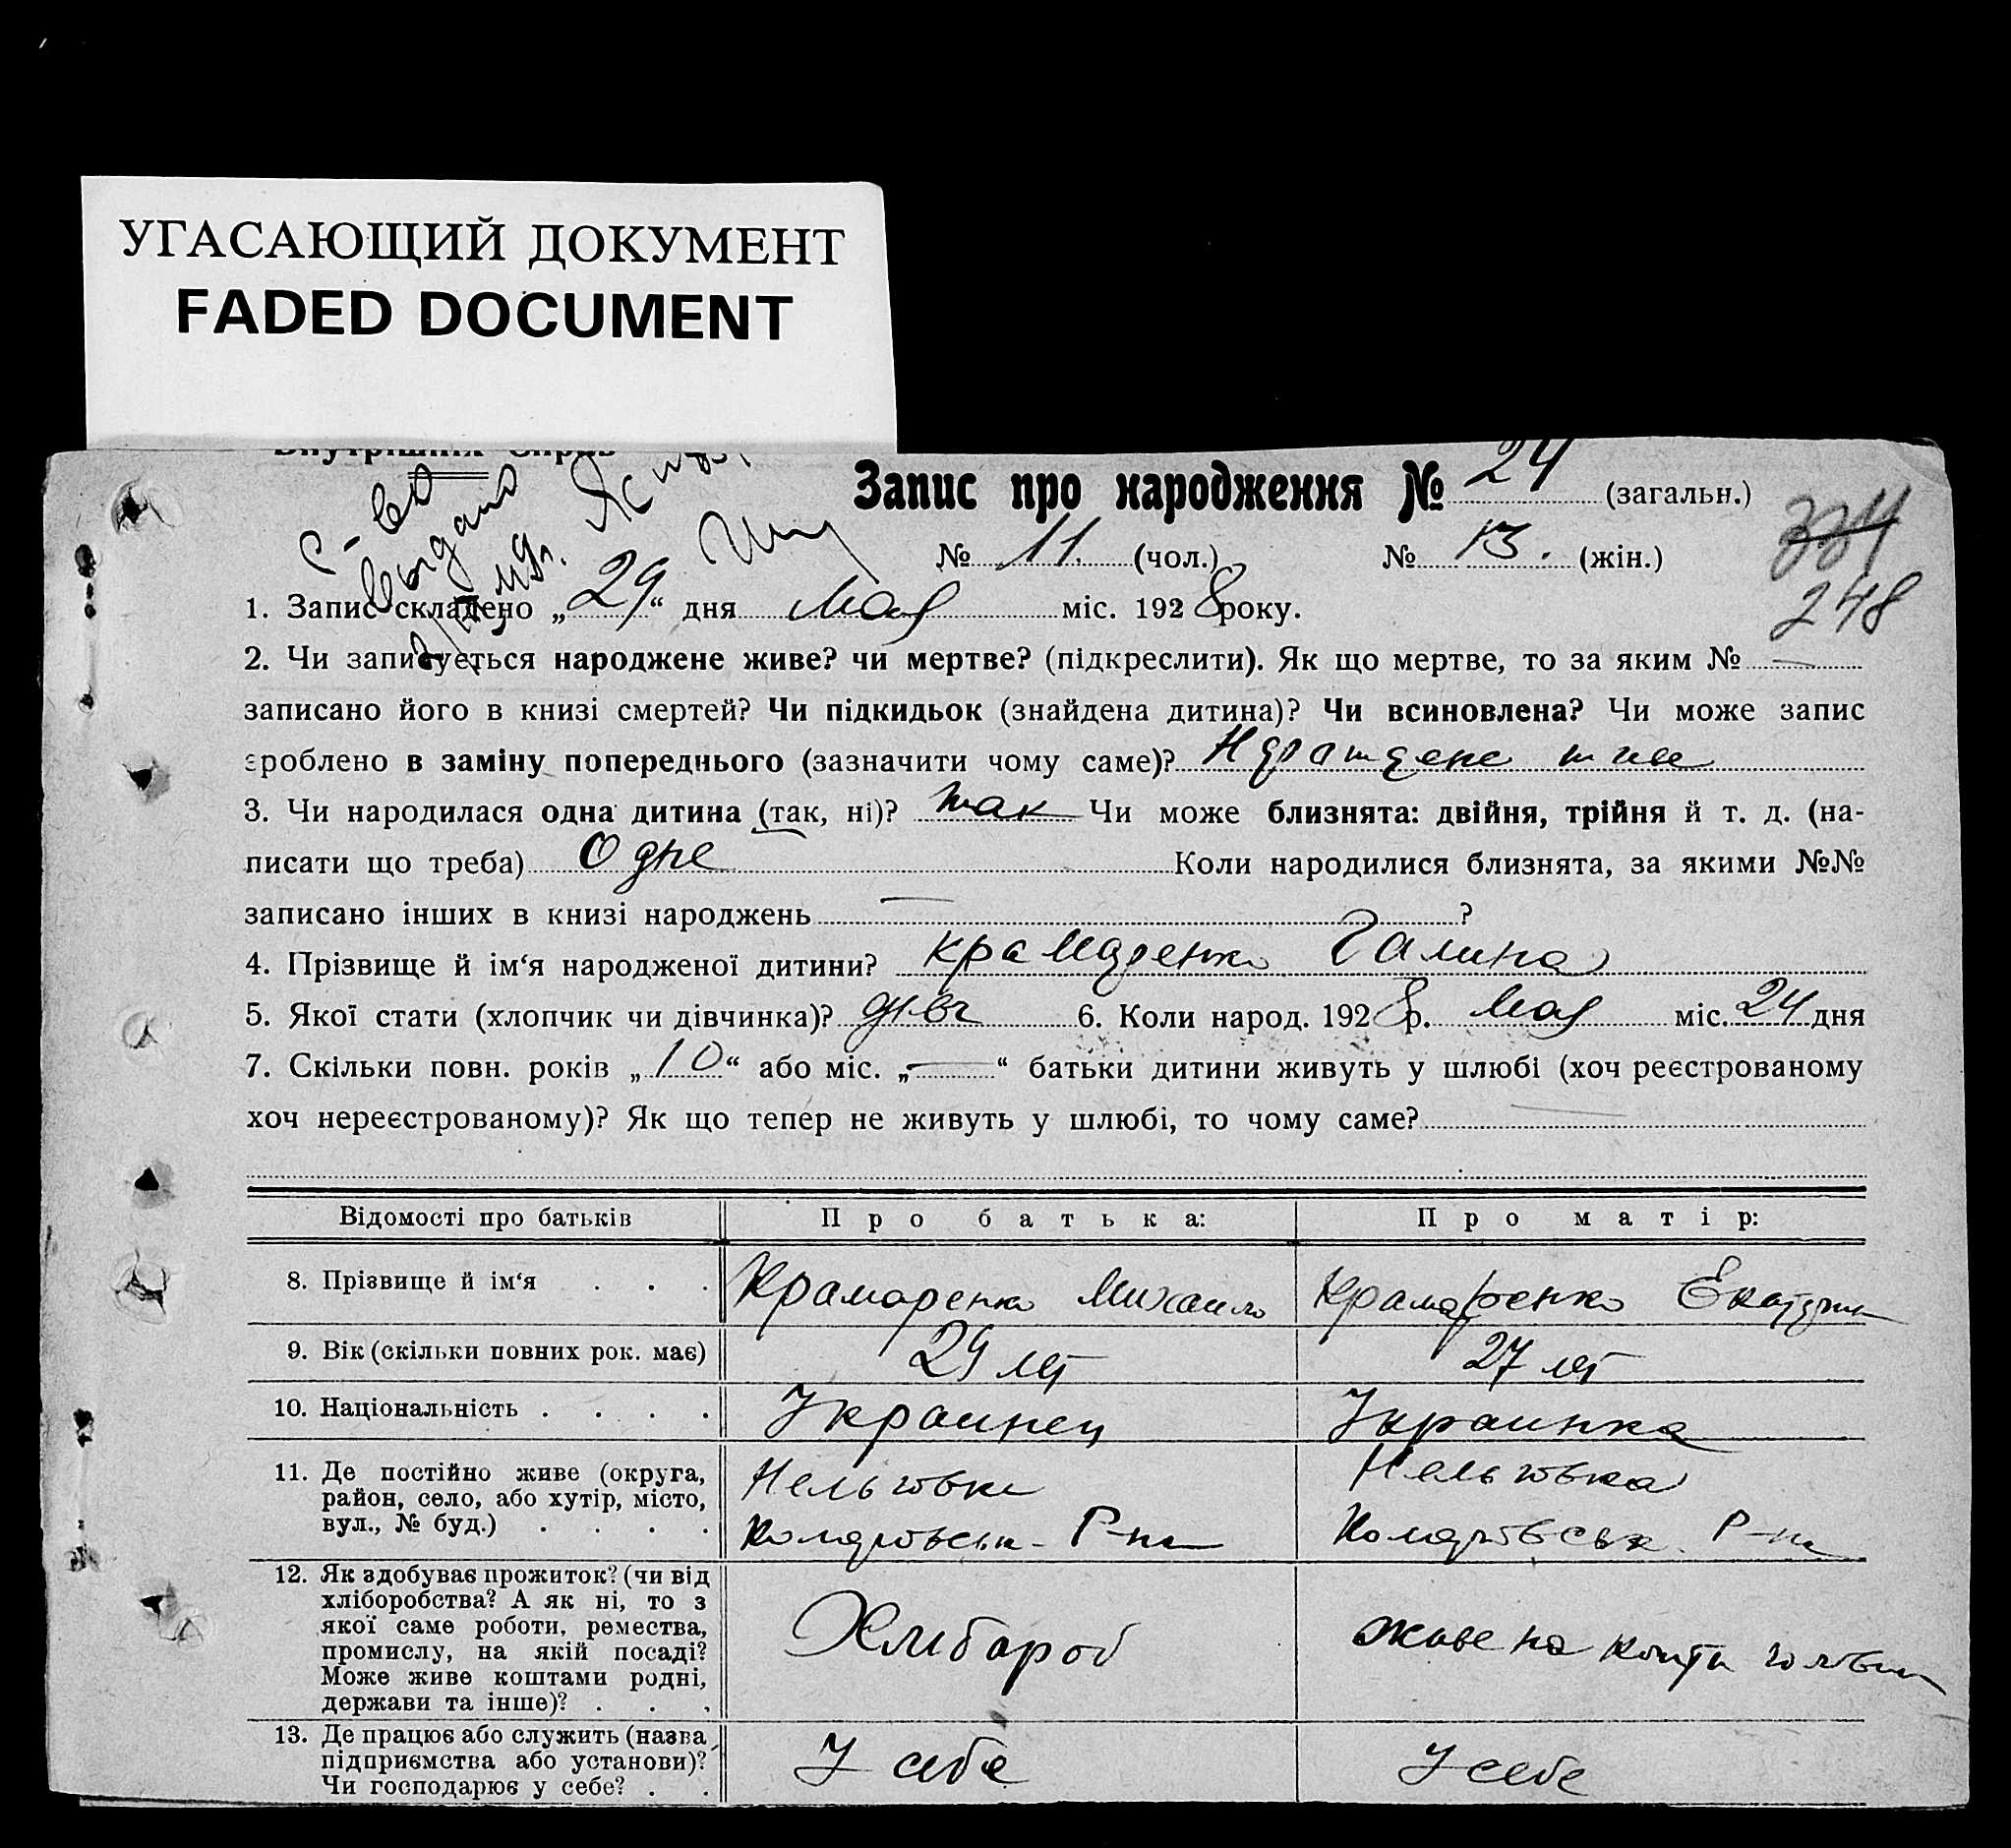 УГАСАЮЩИЙ ДОКУМЕНТ
FADED DOCUMENT
Внутрішніх Справ
с-во
выдано
Запис про народження № 24 (загальн.)
№ 11. (чол.) № 13. (жін.)
334
248
1. Запис складено „29“ дня Мая міс. 1928 року.
2. Чи записується народжене живе? чи мертве? (підкреслити). Як що мертве, то за яким № —
записано його в книзі смертей? Чи підкидьок (знайдена дитина)? Чи всиновлена? Чи може запис
зроблено в заміну попереднього (зазначити чому саме)?
3. Чи народилася одна дитина (так, ні)? так Чи може близнята: двійня, трійня й т. д. (на-
писати що треба) Одне Коли народилися близнята, за якими №№
записано інших в книзі народжень — ?
4. Прізвище й ім‘я народженої дитини? Крамаренко Галина
5. Якої стати (хлопчик чи дівчинка)? дівч 6. Коли народ. 1928 р. Мая міс. 24 дня
7. Скільки повн. років „10“ або міс. „—“ батьки дитини живуть у шлюбі (хоч реєстрованому
хоч нереєстрованому)? Як що тепер не живуть у шлюбі, то чому саме? —
Відомості про батьків Про батька: Про матір:
8. Прізвище й ім‘я . . . Крамаренко Михаило Крамаренко
9. Вік (скільки повних рок. має) 29 лет 27 лет
10. Національність . . . . Украинец Украинка
11. Де постійно живе (округа,
район, село, або хутір, місто,
вул., № буд.) . . . .
Нельговка Нельговка
Р-на Р-на
12. Як здобуває прожиток? (чи від
хліборобства? А як ні, то з
якої саме роботи, ремества,
промислу, на якій посаді?
Може живе коштами родні,
держави та інше)? . . .
Хлибороб живе на
13. Де працює або служить (назва
підприємства або установи)?
Чи господарює у себе? . .
У себе У себе